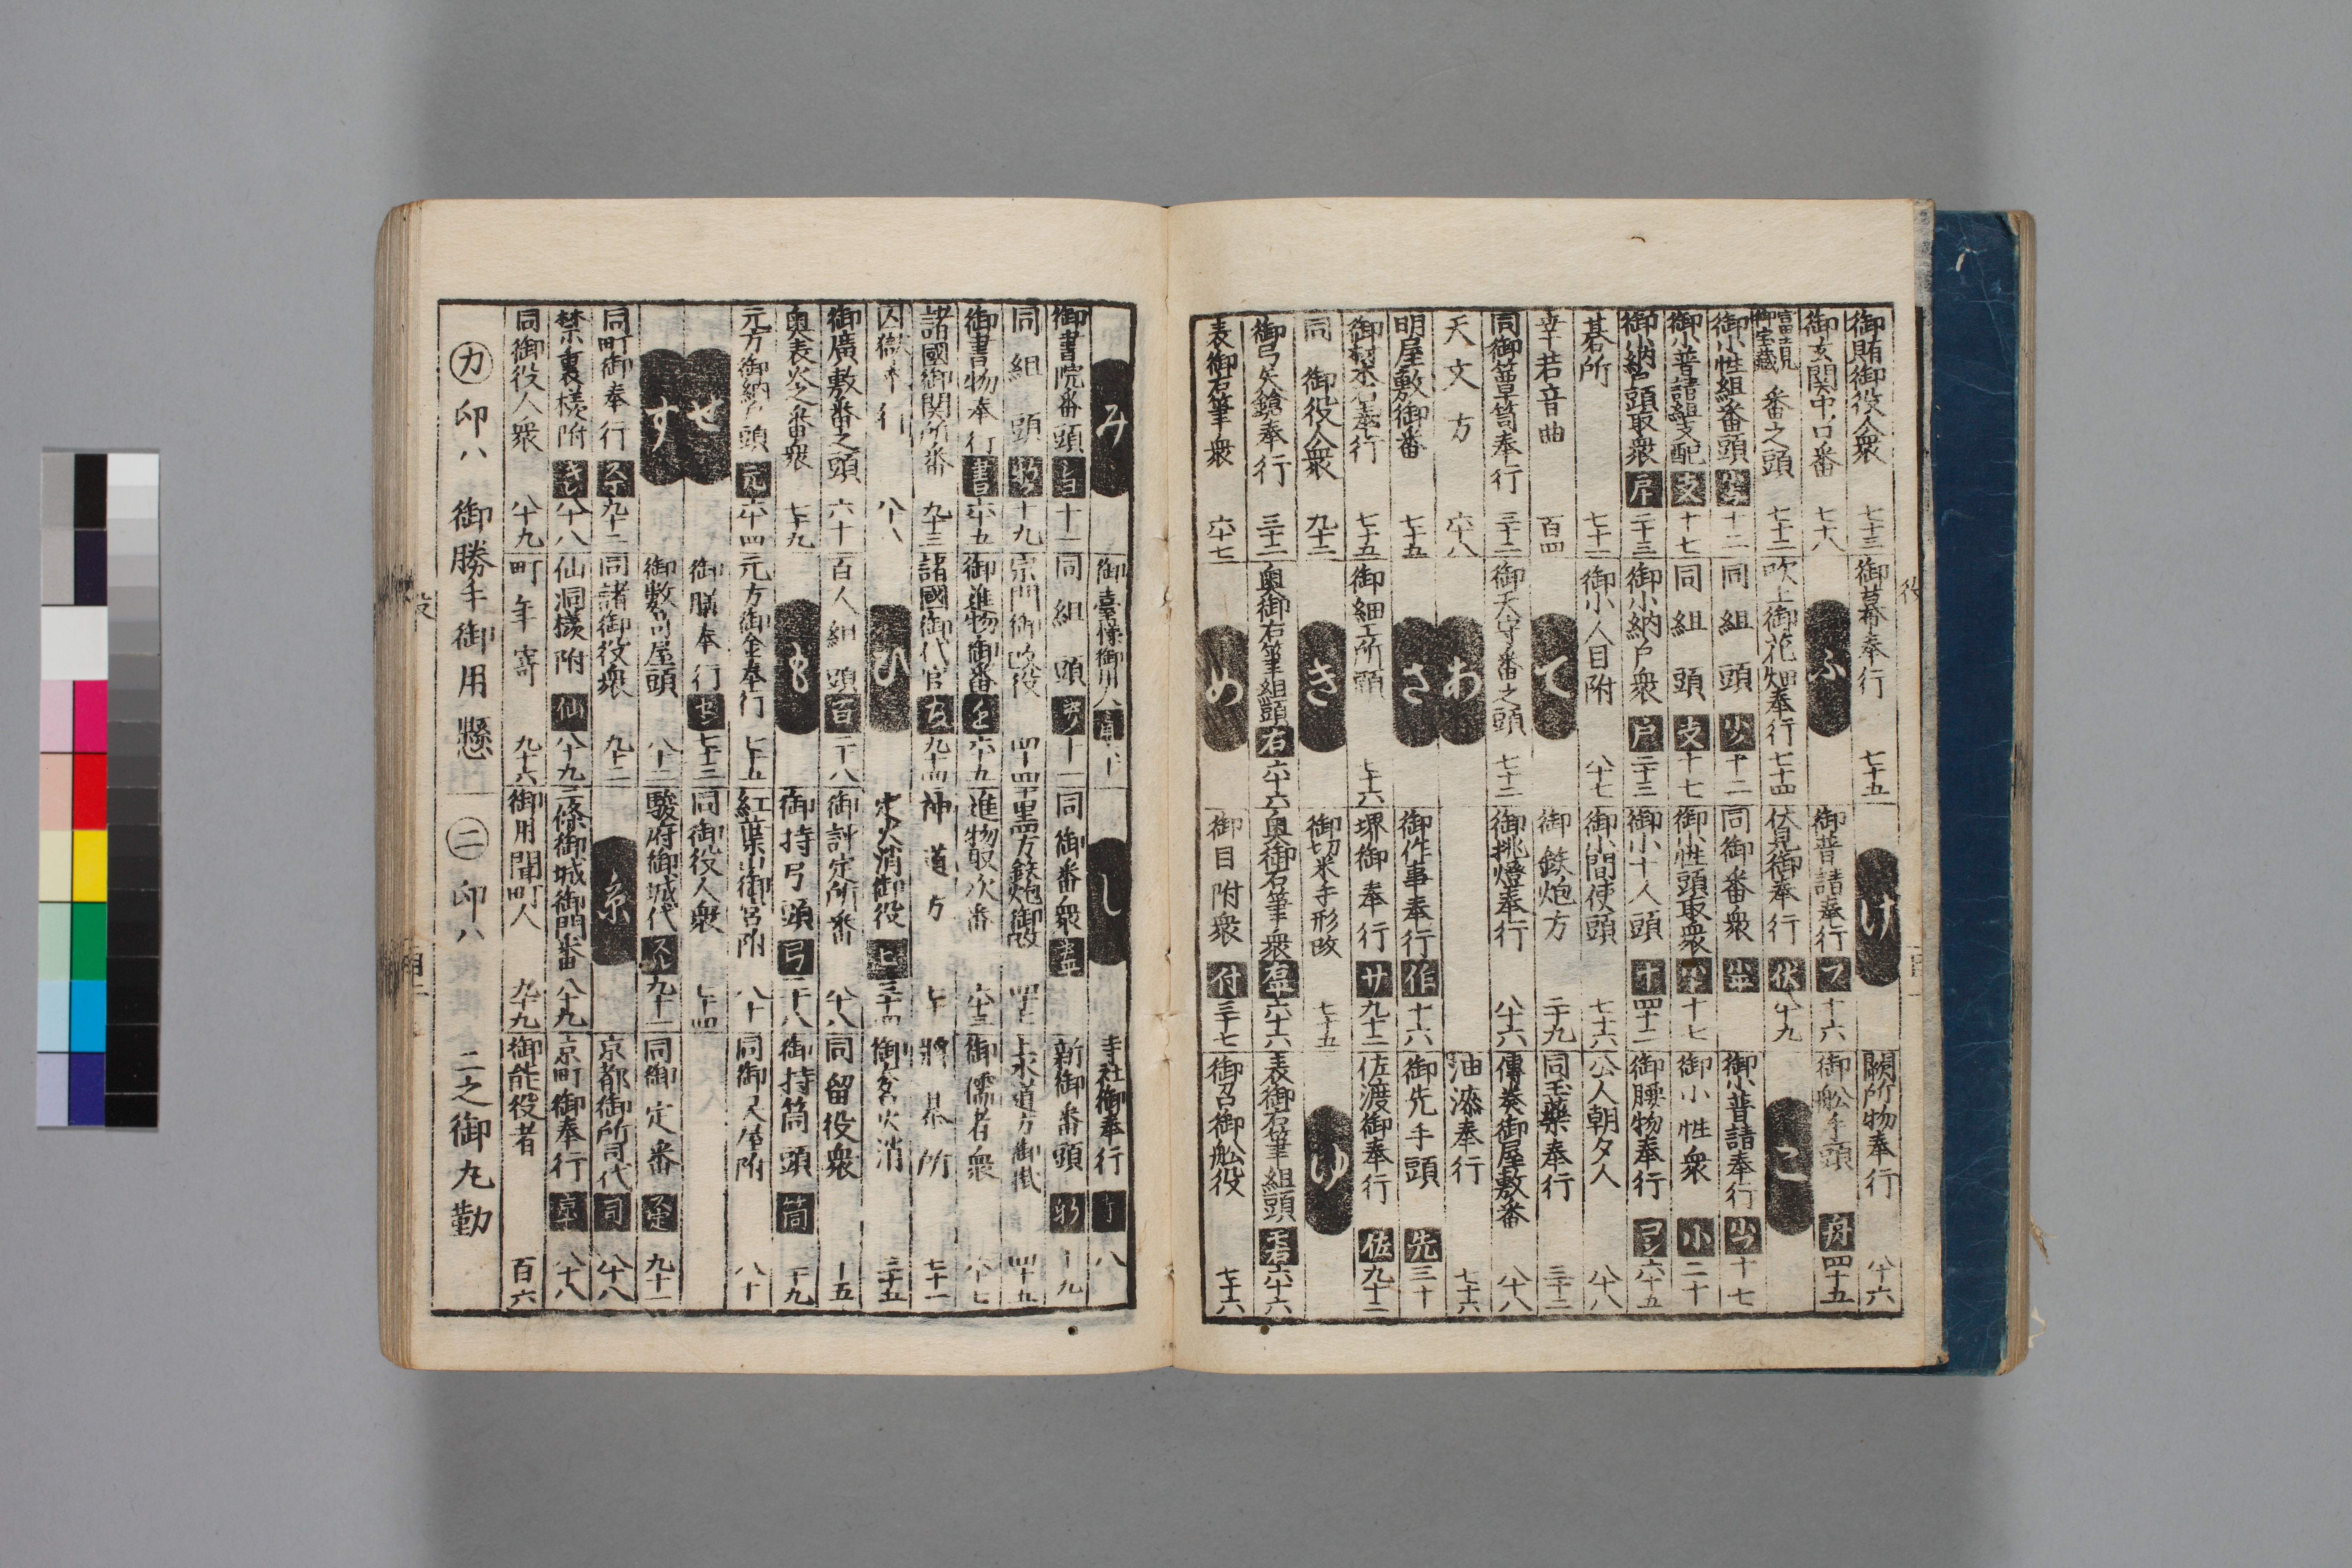 御賄御役人衆 七十三
御幕奉行 七十五
け
闕所物奉行 八十六
御玄関中口番 七十八
ふ
御普請奉行 フ 十六
御舩手頭 舟 四十五
富士見御宝蔵 番之頭 七十二
吹上御花畑奉行 七十四
伏見御奉行 伏 八十九
こ
御小性組番頭 十二
同組頭 十二
同御番衆
御小普請奉行 十七
御小普請組支配 支 十七
同組頭 支 十七
御小性頭取衆 十七
御小性衆 小 二十
御小納戸頭取衆 戸 二十三
御小納戸衆 戸 二十三
御小十人頭 十 四十二
御腰物奉行 コシ 六十五
碁所 七十二
御小人目附 八十七
御小間使頭 七十六
公人朝夕人 八十八
幸若音曲 百四
て
御鉄炮方 二十九
同玉薬奉行 三十二
同御簞笥奉行 三十二
御天守番之頭 七十二
御挑燈奉行 八十六
傳奏御屋敷番 八十八
天文方 六十八
あ
油漆奉行 七十六
明屋敷御番 七十五
さ
御作事奉行 作 十六
御先手頭 先 三十
御材木石奉行 七十五
御細工所頭 七十六
堺御奉行 サ 九十二
佐渡御奉行 佐 九十二
同 御役人衆 九十二
き
御切米手形改 七十五
ゆ
御弓矢鎗奉行 三十二
奥御右筆組頭 右 六十六
奥御右筆衆 六十六
表御右筆組頭 六十六
表御右筆衆 六十七
め
御目附衆 付 三十七
御召御舩役 七十六
み
御臺様御用人
し
寺社御奉行 寺 八
御書院番頭 十一
同組頭 十一
同御番衆
新御番頭 新 十九
同組頭 十九
宗門御改役 四十四
十里四方鉄炮御改
上水道方御掛 四十五
御書物奉行 書 六十五
御進物御番 六十五
進物取次番 六十三
御儒者衆 六十七
諸國御関所番 九十三
諸國御代官 九十四
神道方
將棊所 七十一
囚獄奉行 八十八
ひ
定火消御役 ヒ 三十四
三十五
御廣敷番之頭 六十
百人組頭 百 二十八
御評定所番 八十八
同留役衆 十五
奥表火之番衆 七十九
も
御持弓頭 弓 二十八
御持筒頭 筒 二十九
元方御納戸頭 元 六十四
元方御金奉行 七十五
紅葉山御宮附 八十
同御火ノ番附 八十
せ
御膳奉行 セン 七十三
同御役人衆 七十四
す
御數寄屋頭 八十二
駿府御城代 九十一
同御定番 九十一
同町御奉行 九十二
同諸御役衆 九十二
京
京都御所司代 司 八十八
禁裏様附 八十八
仙洞様附 仙 八十九
二條御城御門番 八十九
京町御奉行 八十八
同御役人衆 八十九
町年寄 九十六
御用聞町人 九十九
御能役者 百六
カ 印ハ 御勝手御用懸
二 印ハ 二之御丸勤